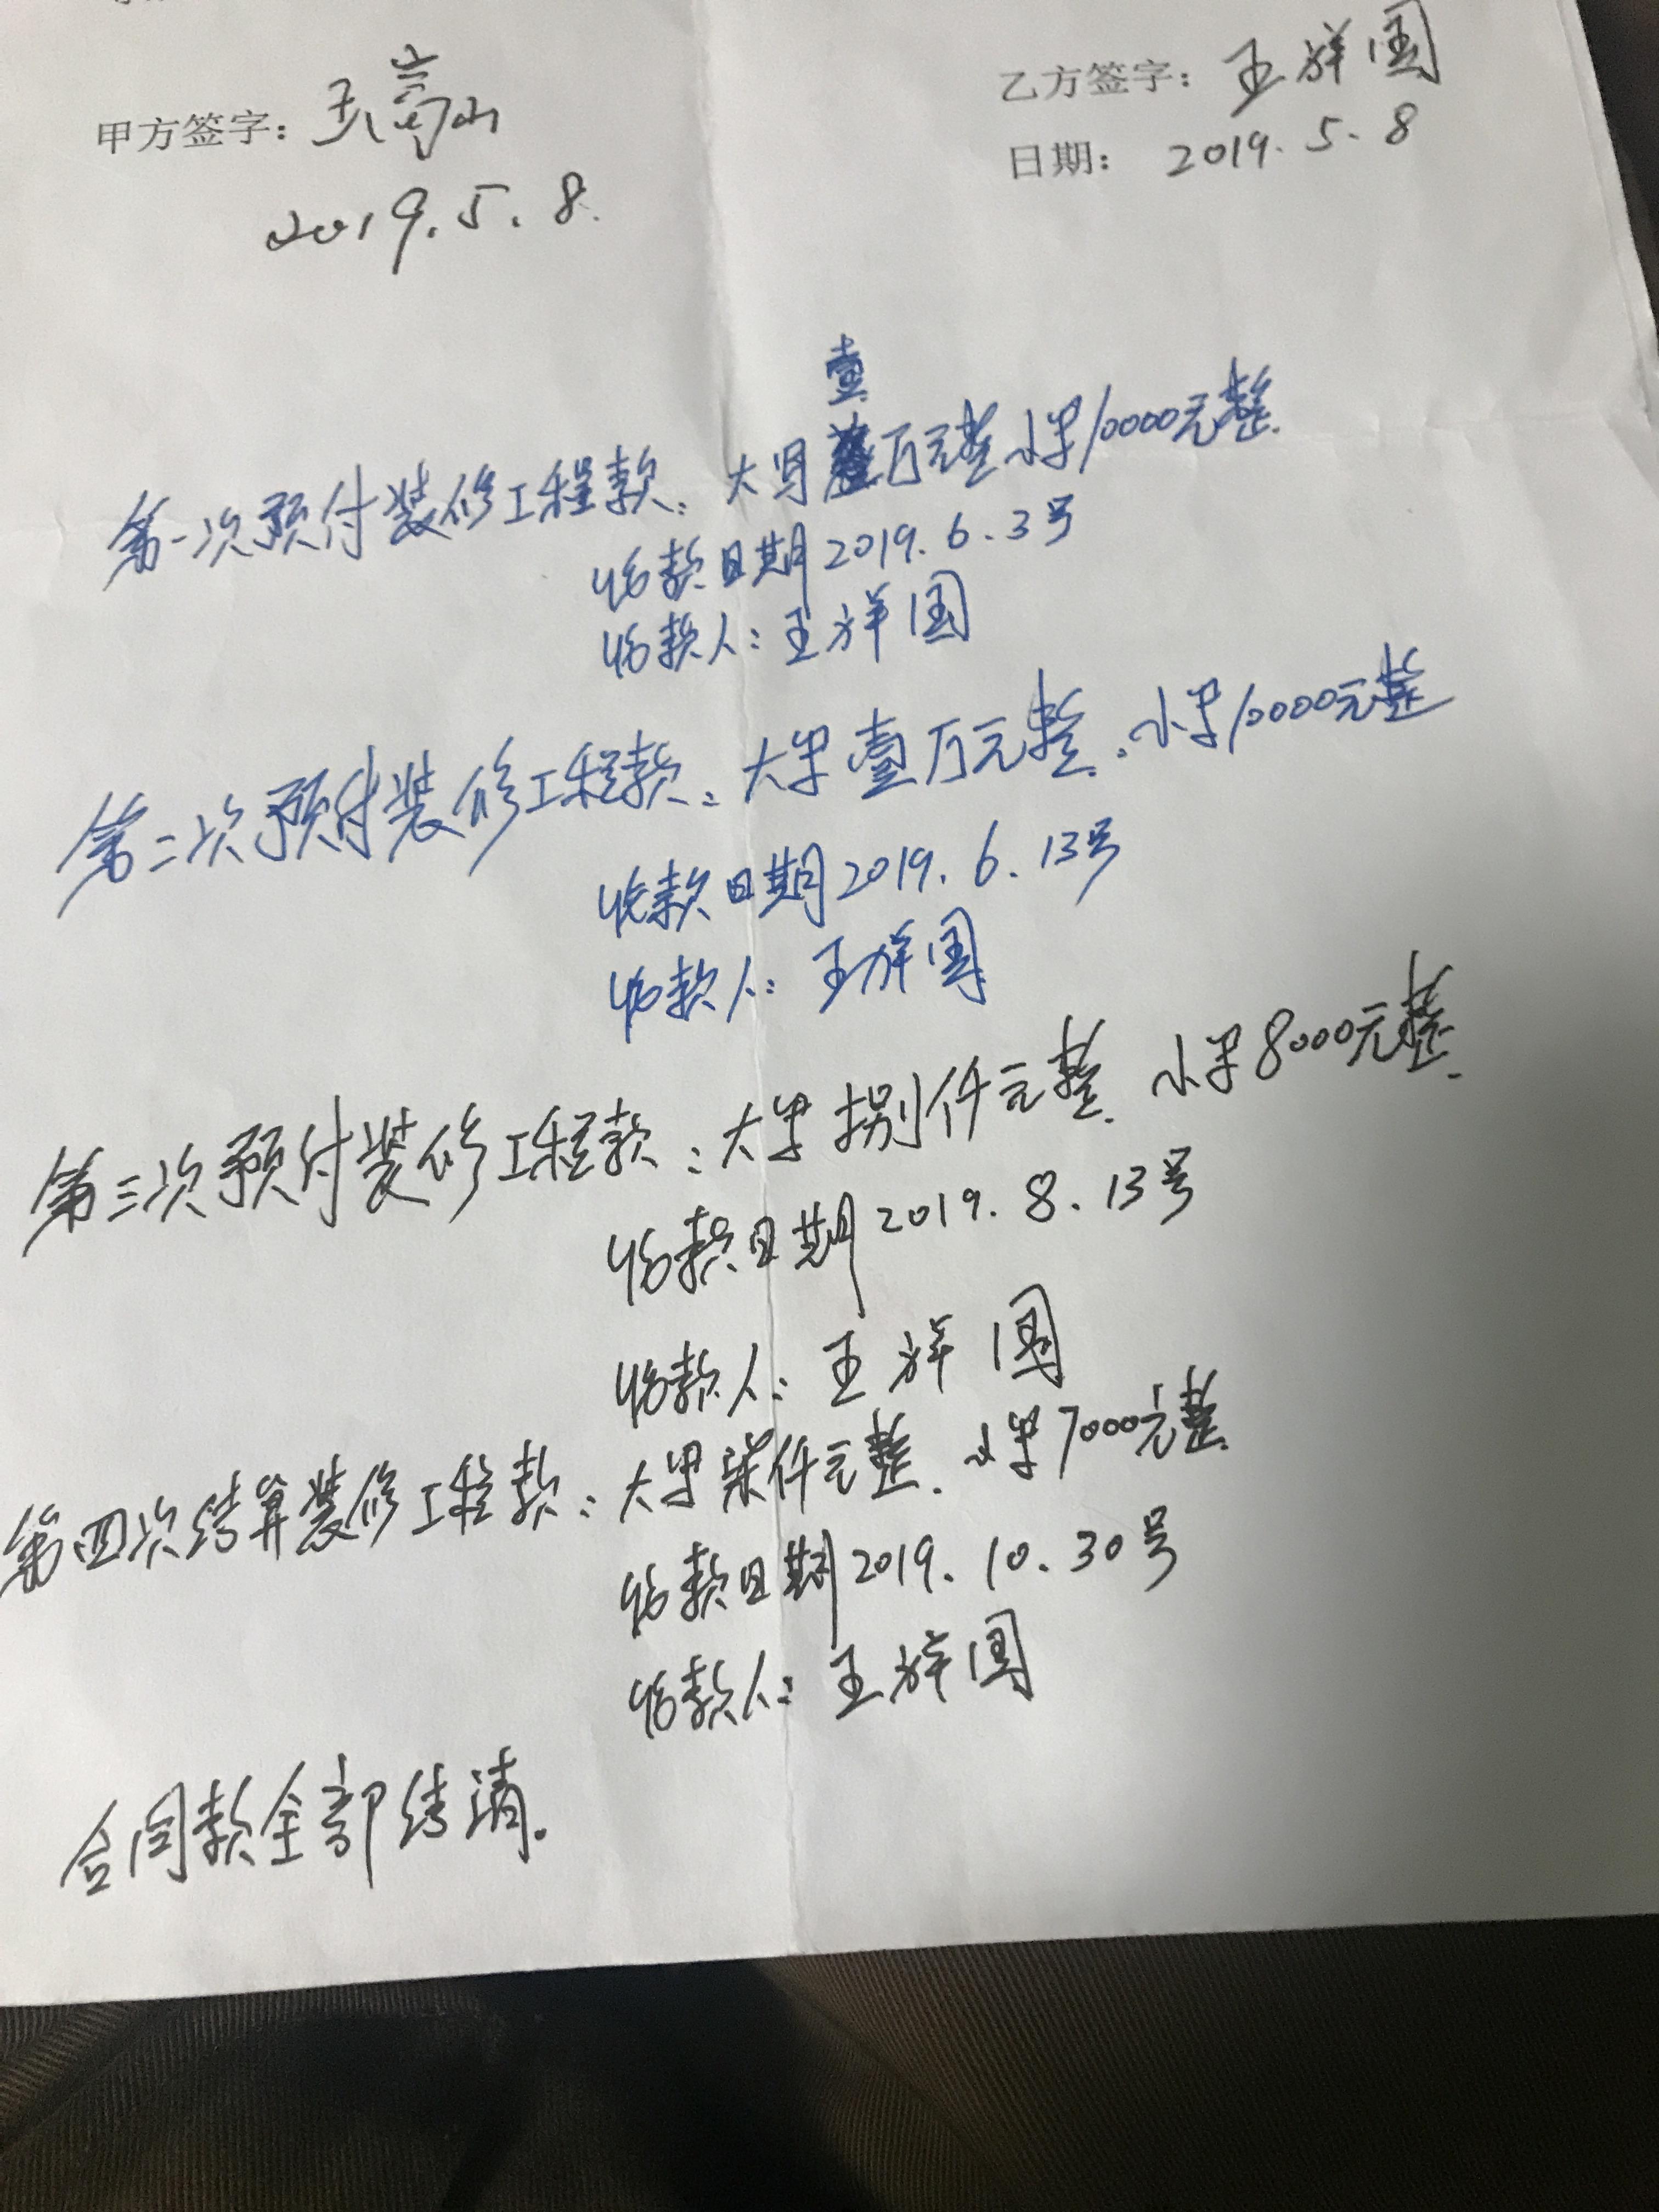 甲方签字：
乙方签字：王祥国
2019.5.8.
日期：2019.5.8
壹
第一次预付装修工程款：大写万元整小写10000元整.
收款日期2019.6.3号
收款人：王祥国
第二次预付装修工程款：大写壹万元整.小写10000元整
收款日期2019.6.13号
收款人：王祥国
第三次预付装修工程款：大写捌仟元整.小写8000元整.
收款日期2019.8.13号
收款人：王祥国
第四次结算装修工程款：大写柒仟元整.小写7000元整.
收款日期2019.10.30号
收款人：王祥国
合同款全部结清.